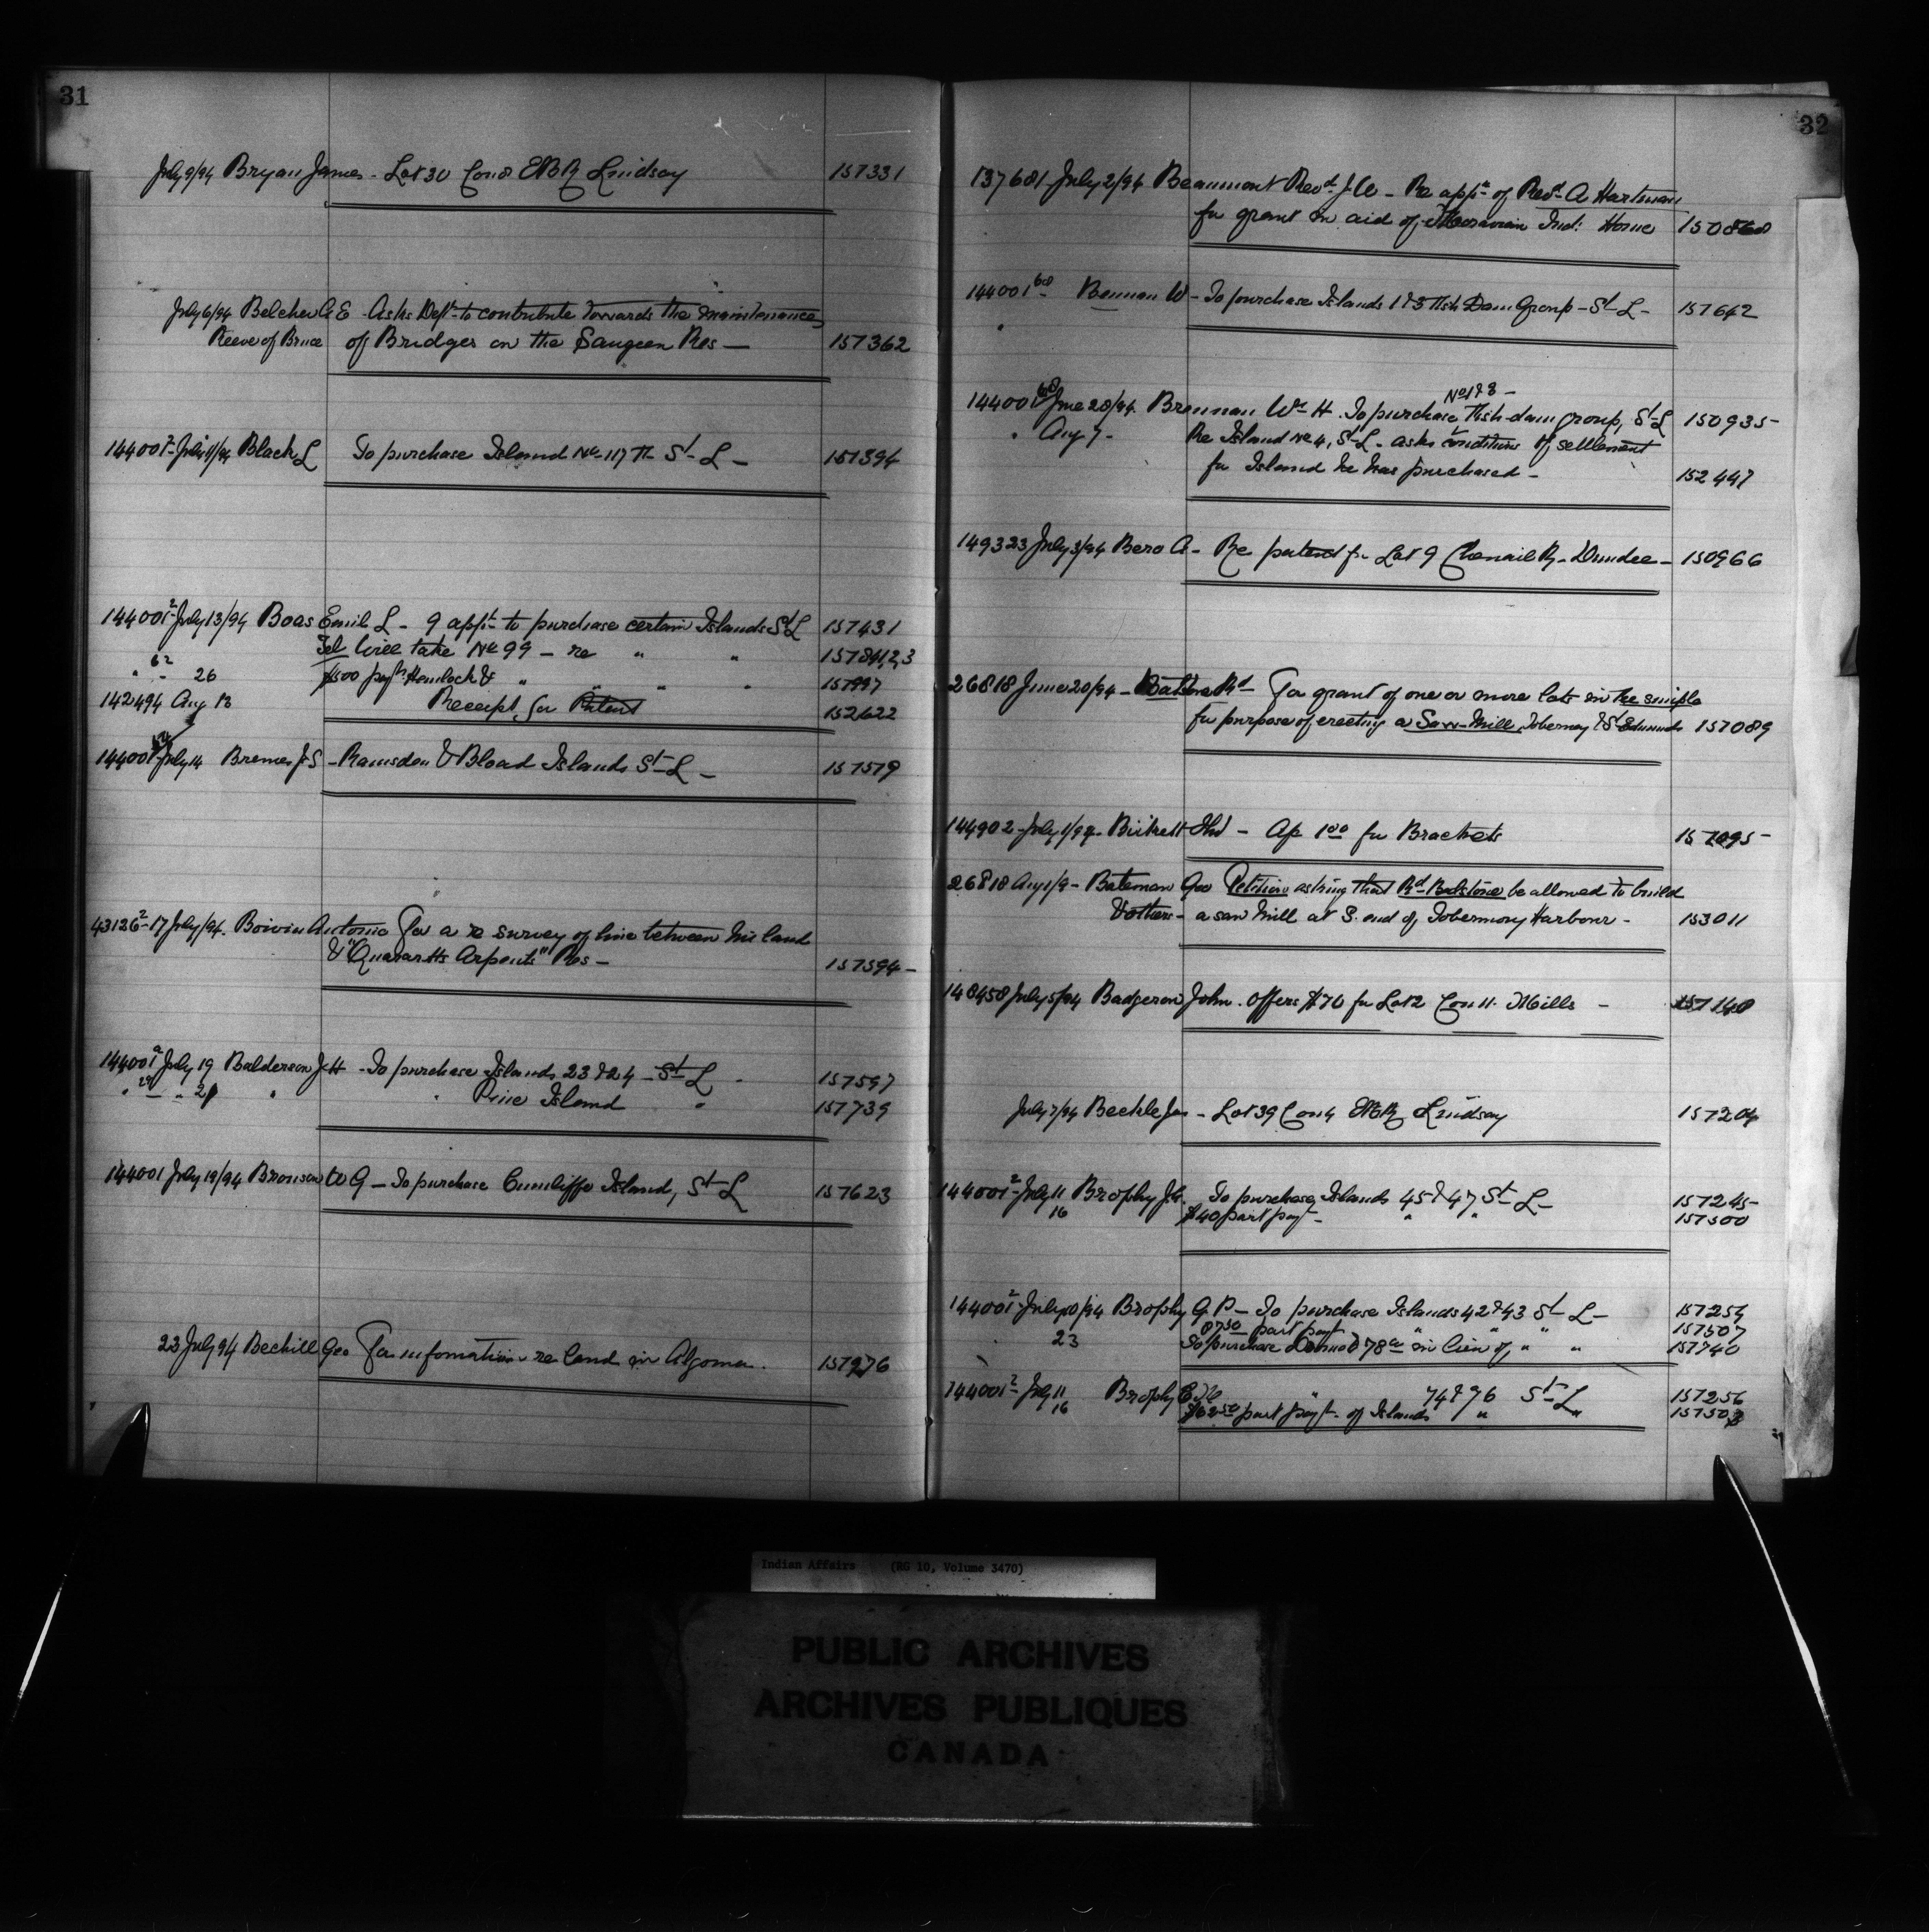 31
July 9/94 Bryan James - Lot 30 Con 8 EBR Lindsay 157331
July 6/94 Belcher A E - Asks Dept to contribute towards the maintenance
Reeve of Bruce of Bridges on the Saugeen Res - 157362
144001² July 11/94 Black L To purchase Island No 117 St L - 157394
144001² July 13/94 Boas Emil L - 9 appn to purchase certain Islands St L 157431
Tel Will take No 99 - re " " 157841,2,3
" 62 - 26 $500 payt Hemlock & " " " " 157997
142494 Aug 13 Receipt for Patent 152622
144001 July 14 Bremer J S - Ramsden & Bload Islands St L - 157579
43126² 17 July/94. Boivin Antonio For a re survey of line between his land
& "Quarante Arpents" Res - 157594 -
144001 July 19 Balderson J H - To purchase Islands 23 & 24 - St L - 157597
" 29 - " 21 " " Pine Island " 157739
144001 July 19/94 Bronson W G - To purchase Cunliffe Island, St L 157623
23 July 94 Bechill Geo For information re land in Algoma. 157976
32
137681 July 2/94 Beaumont Revd J W - Re appn of Revd A Hartman
for grant in aid of Moravian Ind: Home 150868
144001 68 Bennan W - To purchase Islands 1 & 3 Fish Dam Group - St L - 157642
No 1 & 3 -
144001 68 June 28/94. Brennan Wm H. To purchase Fish dam group, St L 150935 -
" Aug 7 - Re Island No 4, St L - asks conditions of settlement
for Island he has purchased - 152447
149323 July 3/94 Bero A - Re patent for Lot 9 Chenail R - Dundee - 150966
26818 June 20/94 - Rd For grant of one or more lots in fee simple
for purpose of erecting a Saw-Mill, Tobermory & St Edmunds 157089
144902 - July 1/94 - Birkett Thos - Ap 100 for Brackets 157095 -
26818 Aug 1/9 - Bateman Geo Petition asking that Rd Badstone be allowed to build
& others - a saw mill at S. end of Tobermory Harbour - 153011
148458 July 5/94 Badgerow John. Offers $70 for Lot 2 Con 11. Mills - 157140
July 7/94 Bechle Jas - Lot 39 Con 4 EBR Lindsay 157204
144001² July 11 Brophy J. To purchase Islands 45 & 47 St L - 157245 -
16 $40 part payt - " " 157500
144001² July 10/94 Brophy G P - To purchase Islands 42 & 43 St L - 157254
part payt " " " 157507
23 To purchase & 78 in lieu of " " 157740
144001² July 11 Brophy E " 74 & 76 St L 157256
16 $62 50 part payt. of Islands " " 157503
Indian Affairs (RG 10, Volume 3470)
PUBLIC ARCHIVES
ARCHIVES PUBLIQUES
CANADA